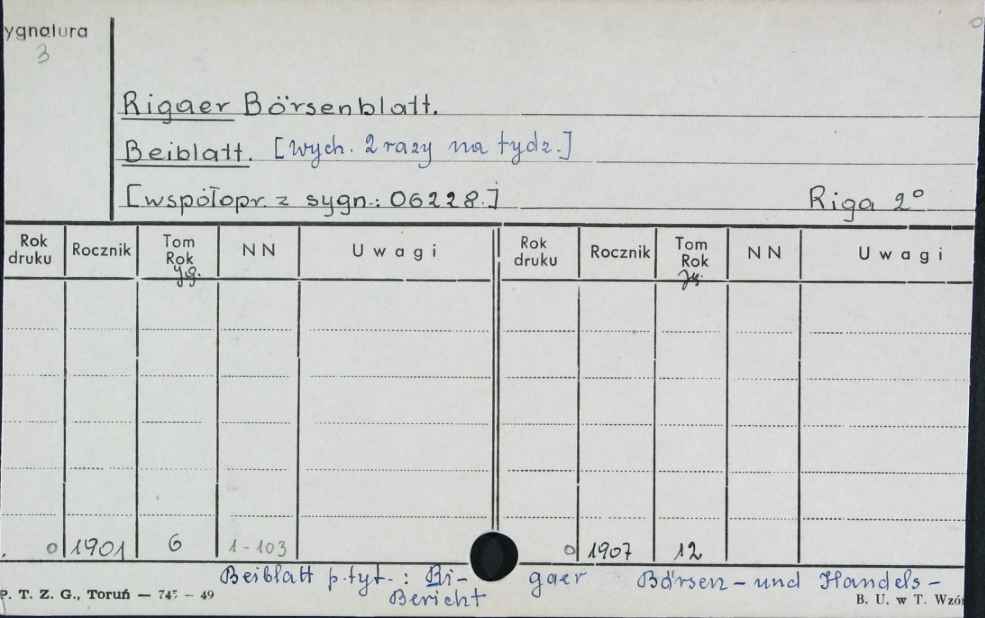 ygnatura
3
Rigaer Börsenblatt.
Beiblatt. [Wych. 2 razy na tydz.]
[współopr. z sygn.: 06228.] Riga 2°
Rok druku Rocznik Tom Rok Jg. N N Uwagi Rok druku Rocznik Tom Rok Jg. N N Uwagi
0 1901 6 1-103 0 1907 12
Beiblatt p. tyt. : Ri- gaer Börsen- und Handels-
Bericht
P. T. Z. G., Toruń — 745 — 49 B. U. w T. Wzór